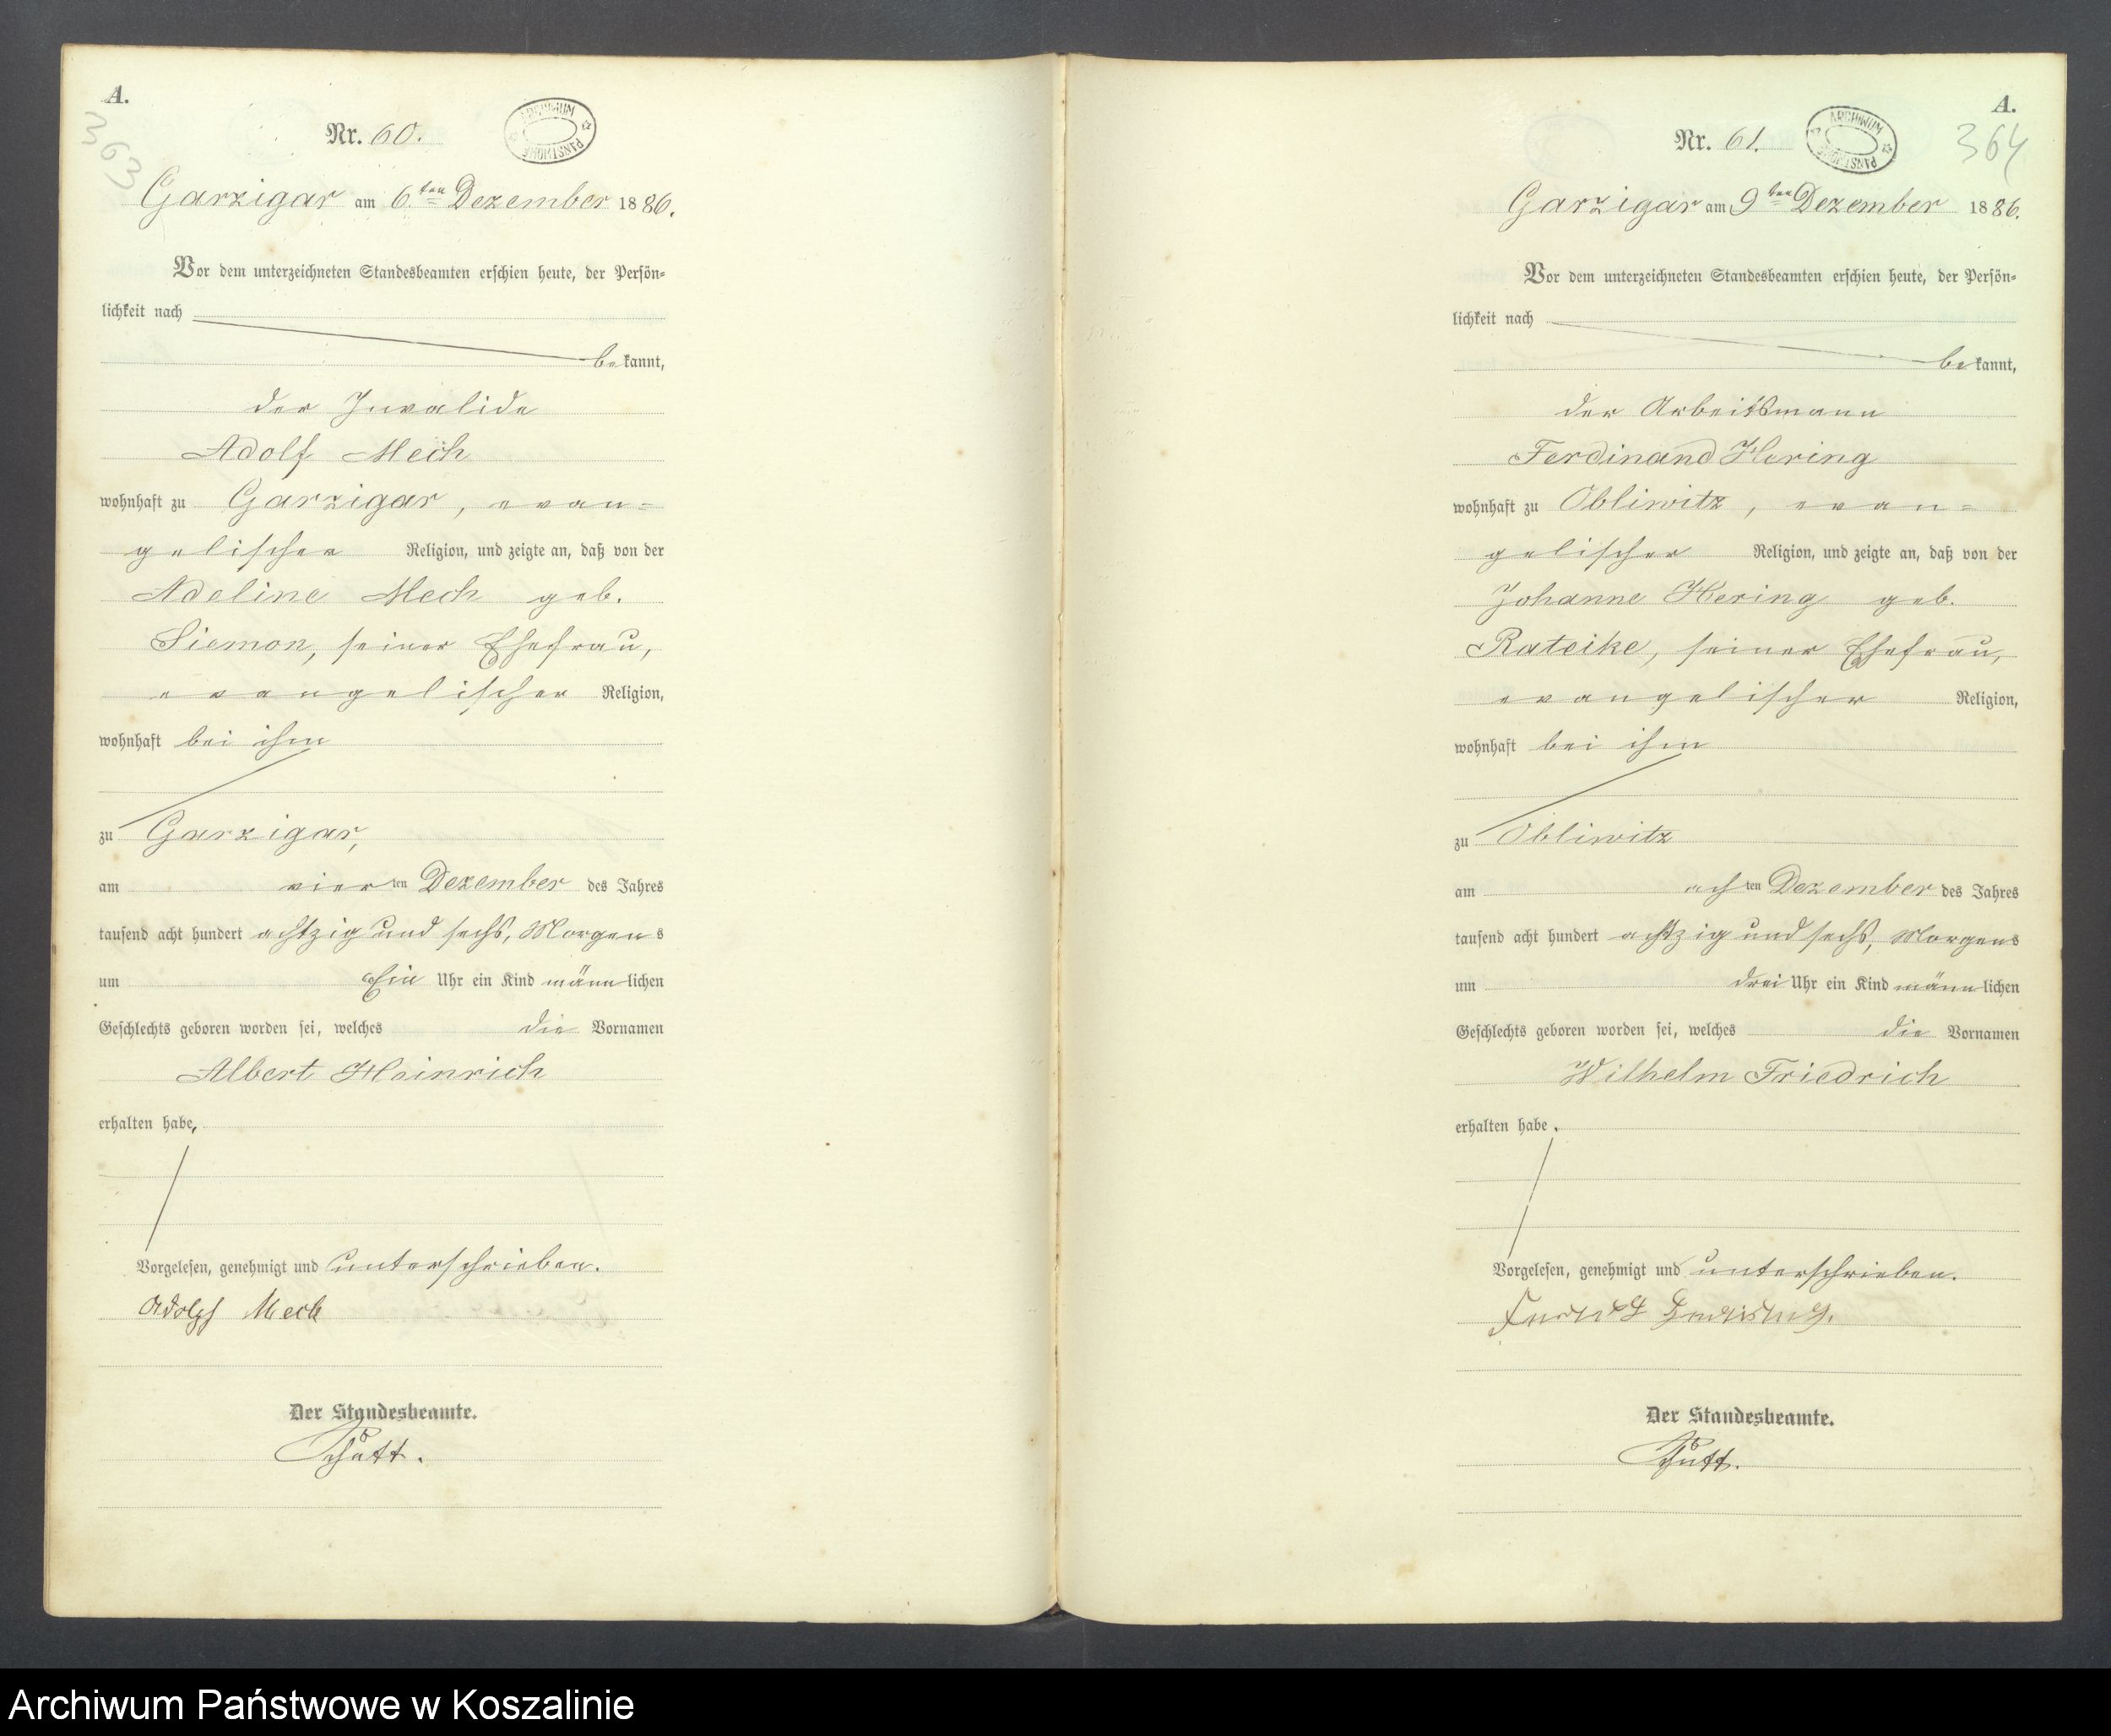 A.
363
Nr. 60.
ARCHIWUM PAŃSTWOWE
Garzigar am 6ten Dezember 1886.
Vor dem unterzeichneten Standesbeamten erschien heute, der Persön-
lichkeit nach
bekannt,
der Invalide
Adolf Mech
wohnhaft zu Garzigar, evan=
gelischer Religion, und zeigte an, daß von der
Adeline Mech geb.
Siemon, seiner Ehefrau,
evangelischer Religion,
wohnhaft bei ihm
zu Garzigar,
am vierten Dezember des Jahres
tausend acht hundert achtzig und sechs, Morgens
um Ein Uhr ein Kind männlichen
Geschlechts geboren worden sei, welches die Vornamen
Albert Heinrich
erhalten habe,
Vorgelesen, genehmigt und unterschrieben.
Adolf Mech
Der Standesbeamte.
Schütt.
A.
364
Nr. 61.
ARCHIWUM PAŃSTWOWE
Garzigar am 9ten Dezember 1886.
Vor dem unterzeichneten Standesbeamten erschien heute, der Persön-
lichkeit nach
bekannt,
der Arbeitsmann
Ferdinand Hering
wohnhaft zu Obliwitz, evan=
gelischer Religion, und zeigte an, daß von der
Johanne Hering geb.
Rateike, seiner Ehefrau,
evangelischer Religion,
wohnhaft bei ihm
zu Obliwitz
am achten Dezember des Jahres
tausend acht hundert achtzig und sechs, Morgens
um drei Uhr ein Kind männlichen
Geschlechts geboren worden sei, welches die Vornamen
Wilhelm Friedrich
erhalten habe.
Vorgelesen, genehmigt und unterschrieben.
Der Standesbeamte.
Schütt.
Archiwum Państwowe w Koszalinie